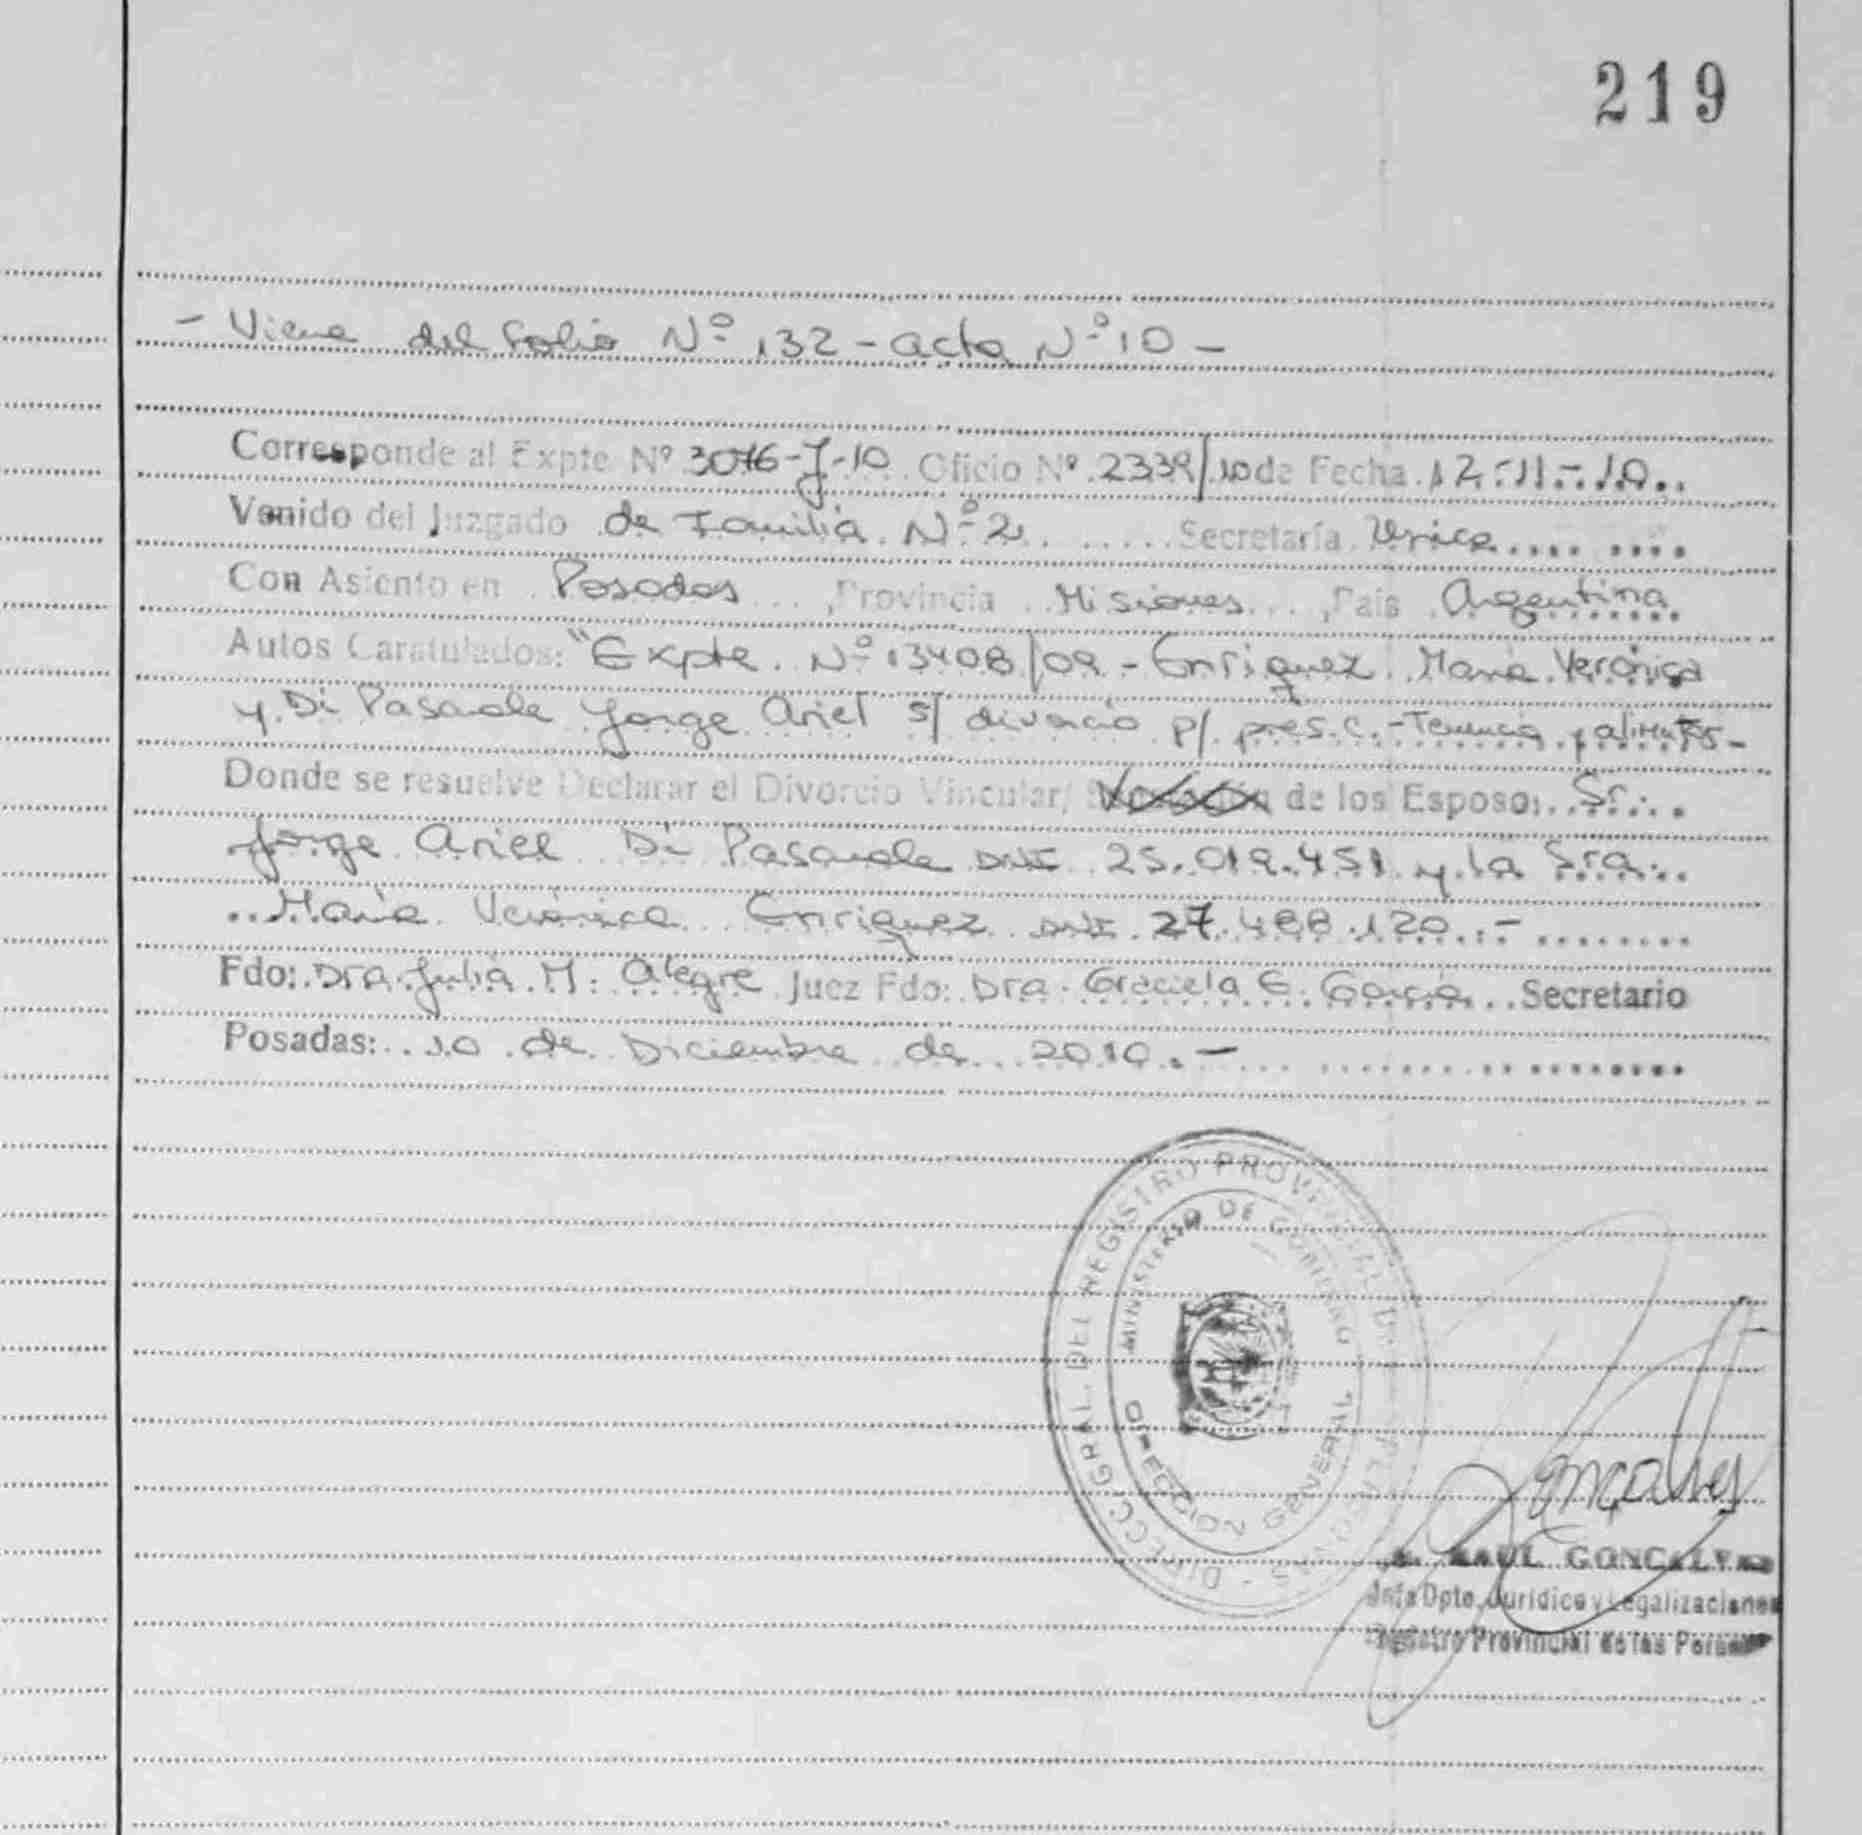 219
- Viene del folio Nº 132 - acta Nº 10 -
Corresponde al Expte Nº 3076-J-10 Oficio Nº 2339/10 de Fecha 12-11-10
Venido del Juzgado de Familia Nº 2 Secretaría Unica
Con Asiento en Posadas, Provincia Misiones, Pais Argentina
Autos Caratulados: "Expte. Nº 13408/09 - Enriquez Maria Verónica
y Di Pasquale Jorge Ariel s/ divorcio p/ pres. c. - Tenencia y alimentos -
Donde se resuelve Declarar el Divorcio Vincular/ de los Esposos: Sr.
Jorge Ariel Di Pasquale DNI 25.019.451 y la Sra.
Maria Verónica Enriquez DNI 27.488.120.-
Fdo: Dra. Julia M. Alegre Juez Fdo: Dra. Graciela E. Garcia Secretario
Posadas: 10 de Diciembre de 2010.-
DIRECC. GRAL. DEL REGISTRO PROVINCIAL DE LAS PERSONAS
MINISTERIO DE GOBIERNO
DIRECCION GENERAL
Goncalves
RAUL GONCALVES
Jefe Dpto. Jurídico y Legalizaciones
Registro Provincial de las Personas